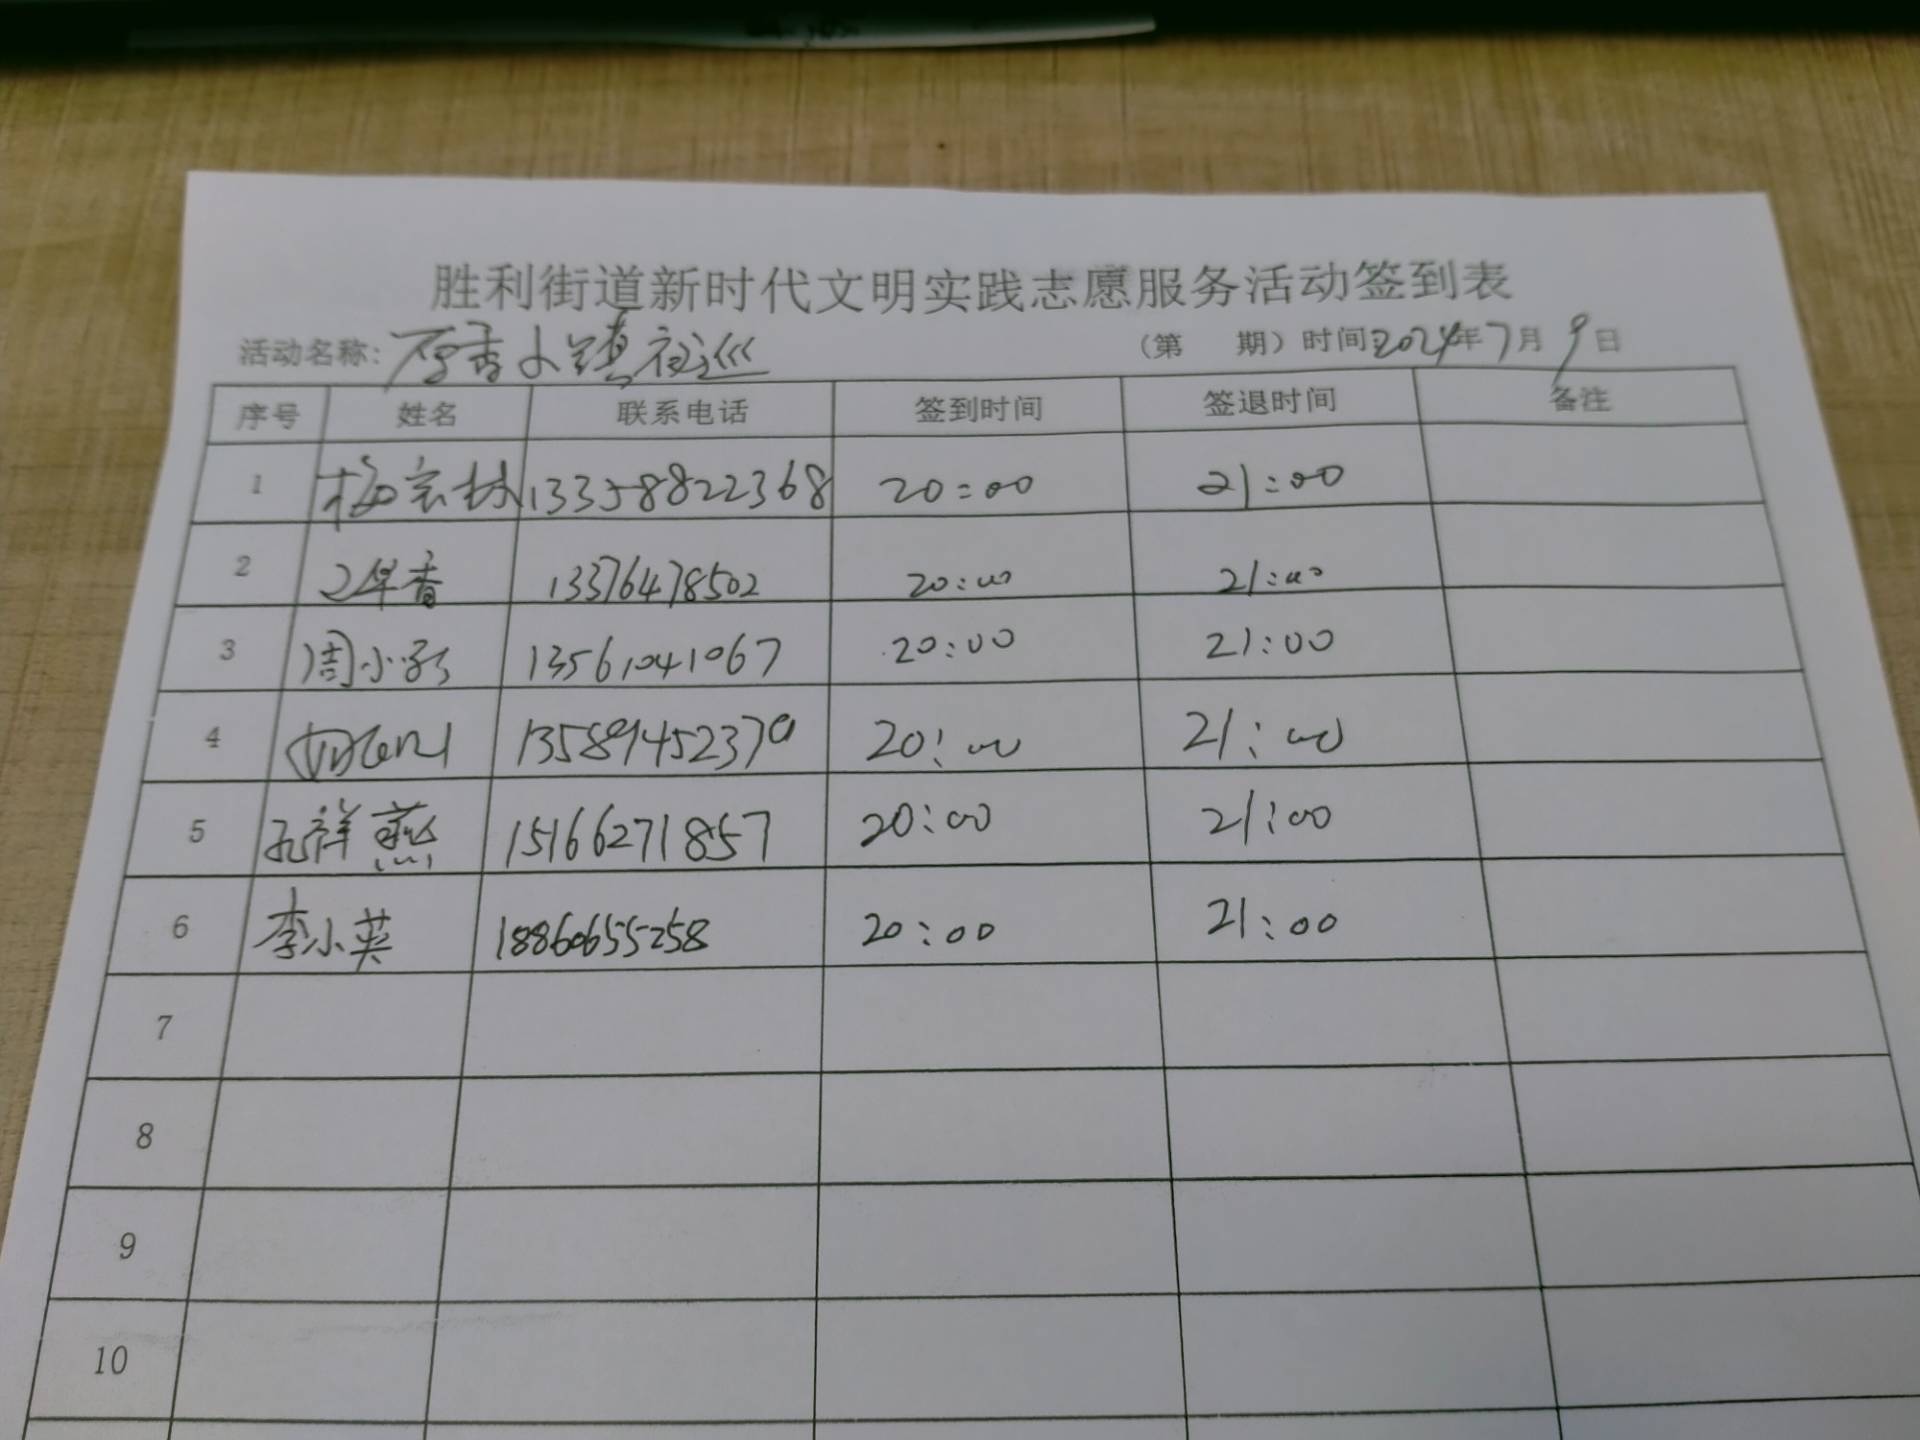 胜利街道新时代文明实践志愿服务活动签到表
活动名称: 香小镇夜巡 (第 期) 时间2024年7月9日
序号 姓名 联系电话 签到时间 签退时间 备注
1 杨宏林 13358822368 20:00 21:00
2 华香 13376478502 20:00 21:00
3 周小彩 13561041067 20:00 21:00
4 13589452370 20:00 21:00
5 孔祥燕 15166271857 20:00 21:00
6 李小英 18860655258 20:00 21:00
7
8
9
10